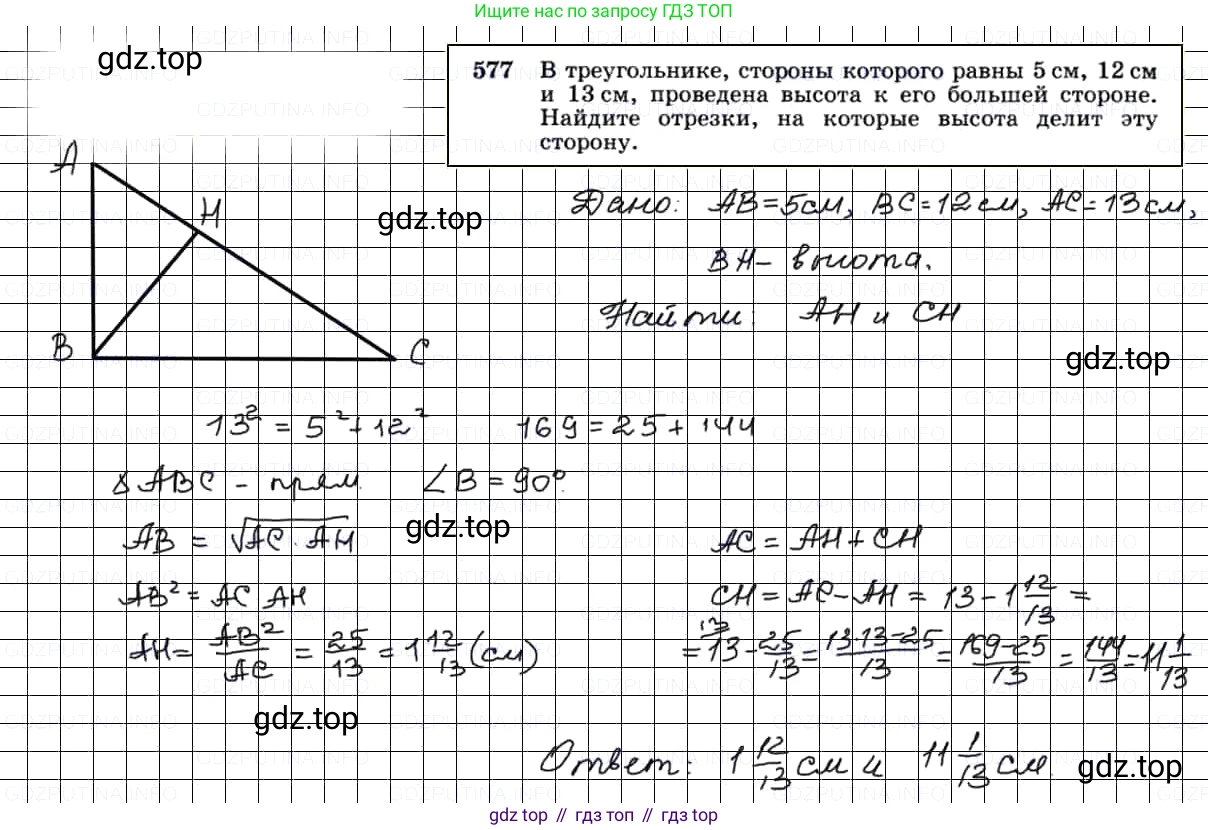 Ищите нас по запросу ГДЗ ТОП
gdz.top
577 В треугольнике, стороны которого равны 5 см, 12 см
и 13 см, проведена высота к его большей стороне.
Найдите отрезки, на которые высота делит эту
сторону.
A
H
gdz.top
Дано: AB=5см, BC=12см, AC=13см,
BH- высота.
Найти: AH и CH
B
C
gdz.top
13² = 5²+12² 169=25+144
∆ABC - прям. ∠B=90°.
gdz.top
AB = √AC·AH
AC = AH+CH
AB² = AC·AH
CH = AC-AH = 13-1 12/13 =
AH = AB²/AC = 25/13 = 1 12/13 (см)
= 13 -25/13 = 13·13-25/13 = 169-25/13 = 144/13 = 11 1/13
gdz.top
Ответ: 1 12/13 см и 11 1/13 см.
gdz.top
gdz top // гдз топ // gdz top